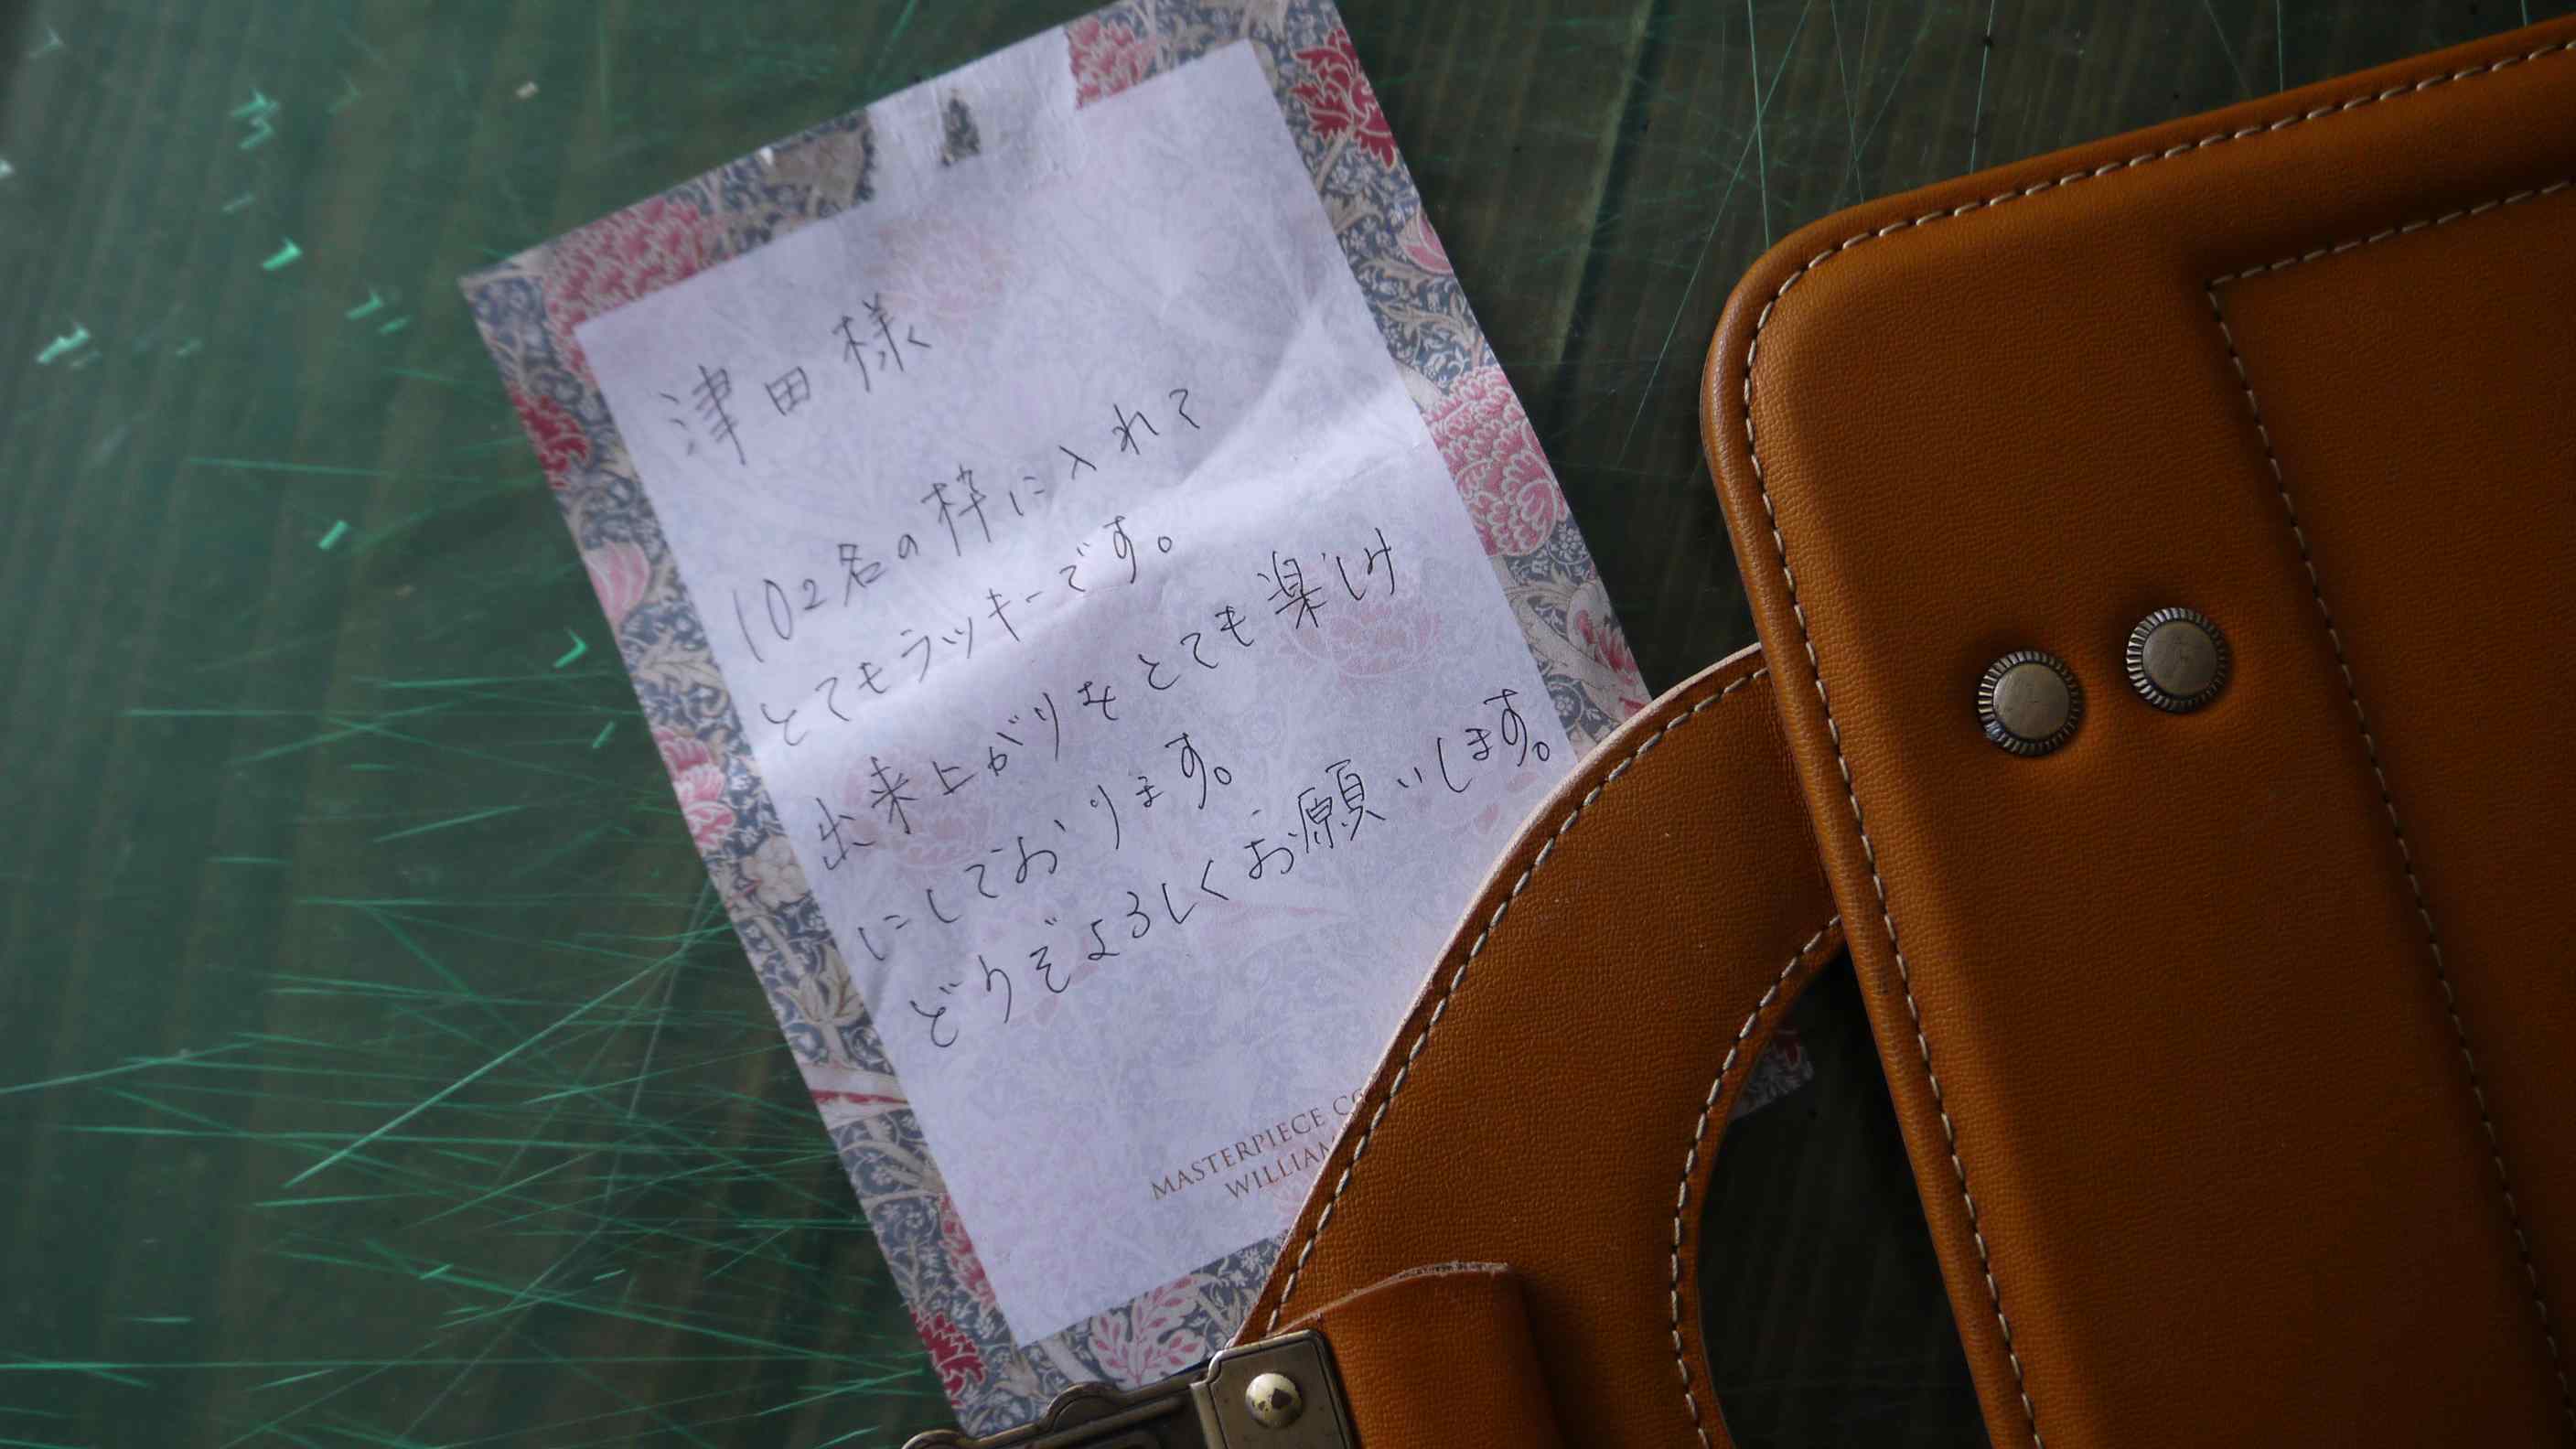 津田様
102名の枠に入れて
とてもラッキーです。
出来上がりをとても楽しみ
にしております。
どうぞよろしくお願いします。
MASTERPIECE CO
WILLIAM